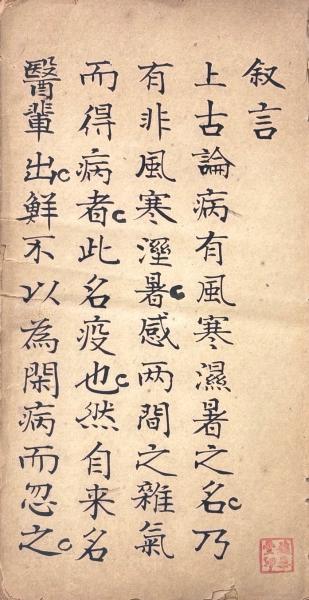 叙言
上古論病有風寒濕暑之名乃
有非風寒溼暑感两間之雜氣
而得病者此名疫也然自来名
醫輩出鮮不以為閑病而忽之